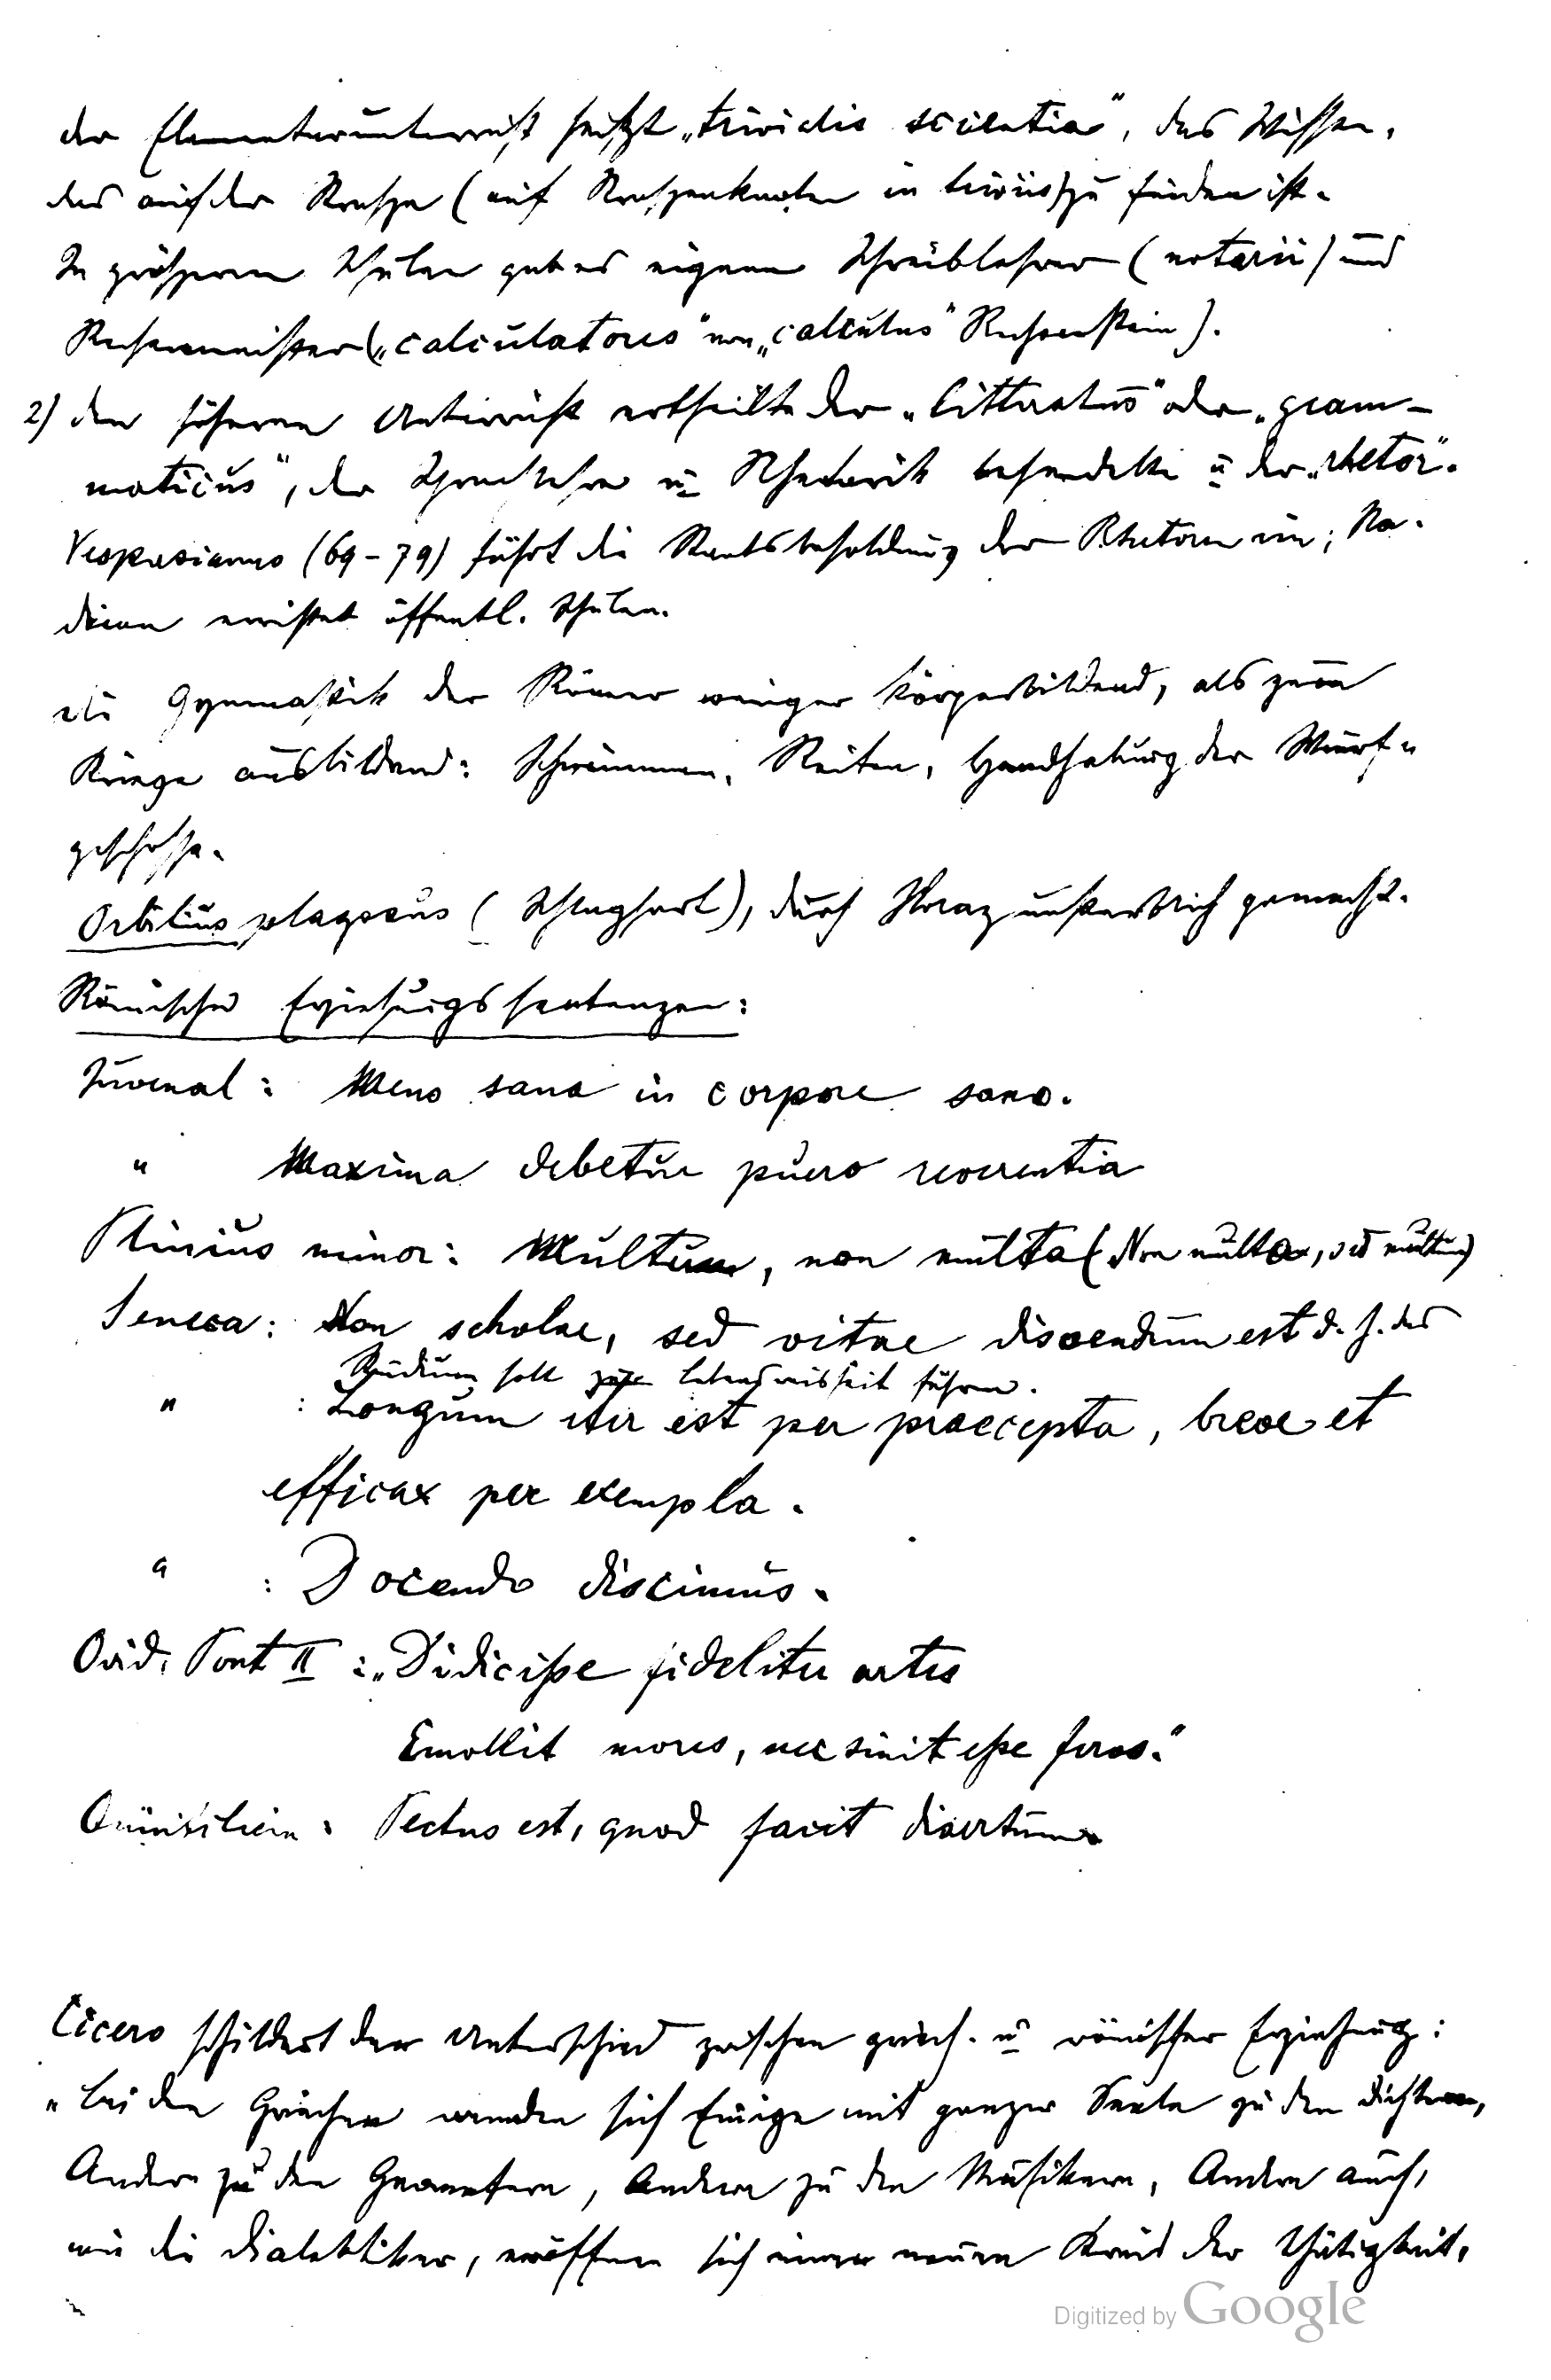 der Elementarunterricht heißt „trivialis scientia“, das Wissen,
das auf der Strasse (auf Strassenknoten in triviis) zu finden ist.
In grösseren Schulen gab es eigene Schreiblehrer (notarii) und
Rechenmeister („calculatores“ von „calculus“ Rechenstein).
2) den höheren Unterricht ertheilte der „litteratus“ oder „gram-
maticus“, der Sprachlehre u. Rhetorik behandelte u. der „rhetor“.
Vespasianus (69-79) führt die Staatsbesoldung der Rhetoren ein; Ha-
drian errichtet öffentl. Schulen.
die Gymnastik der Römer weniger körperbildend, als zum
Kriege ausbildend: Schwimmen, Reiten, Handhabung der Wurf-
geschosse.
Orbilius plagosus (Schlaghart), durch Horaz unsterblich gemacht.
Römische Erziehungssentenzen:
Juvenal: Mens sana in corpore sano.
" Maxima debetur puero reverentia
Plinius minor: Multum, non multa (Non multa, sed multum)
Seneca: Non scholae, sed vitae discendum est d. h. das
Studium soll zur Lebensweisheit führen.
" : Longum iter est per praecepta, breve et
efficax per exempla.
" : Docendo discimus.
Ovid, Pont II: „Didicisse fideliter artes
Emollit mores, nec sinit esse feros.“
Quintilian: Pectus est, quod facit disertum
Cicero schildert den Unterschied zwischen griech. u. römischer Erziehung:
„bei den Griechen wenden sich Einige mit ganzer Seele zu den Dichtern,
Andere zu den Geometern, Andere zu den Musikern, Andere auch,
wie die Dialektiker, eröffnen sich einen neuen Kreis der Thätigkeit,
Digitized by Google